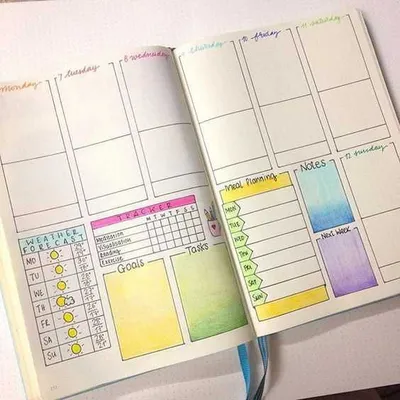 Monday
7 tuesday
8 wednesday
thursday
10 friday
11 saturday
12 sunday
WEATHER
FORECAST
MO
TU
WE
TH
FR
SA
SU
TRACKER
M T W T F S S
Meditation
Visualization
Reading
Exercise
Goals
Tasks
Meal Planning
MON
TUE
WED
THU
FRI
SAT
SUN
Notes
Next Week